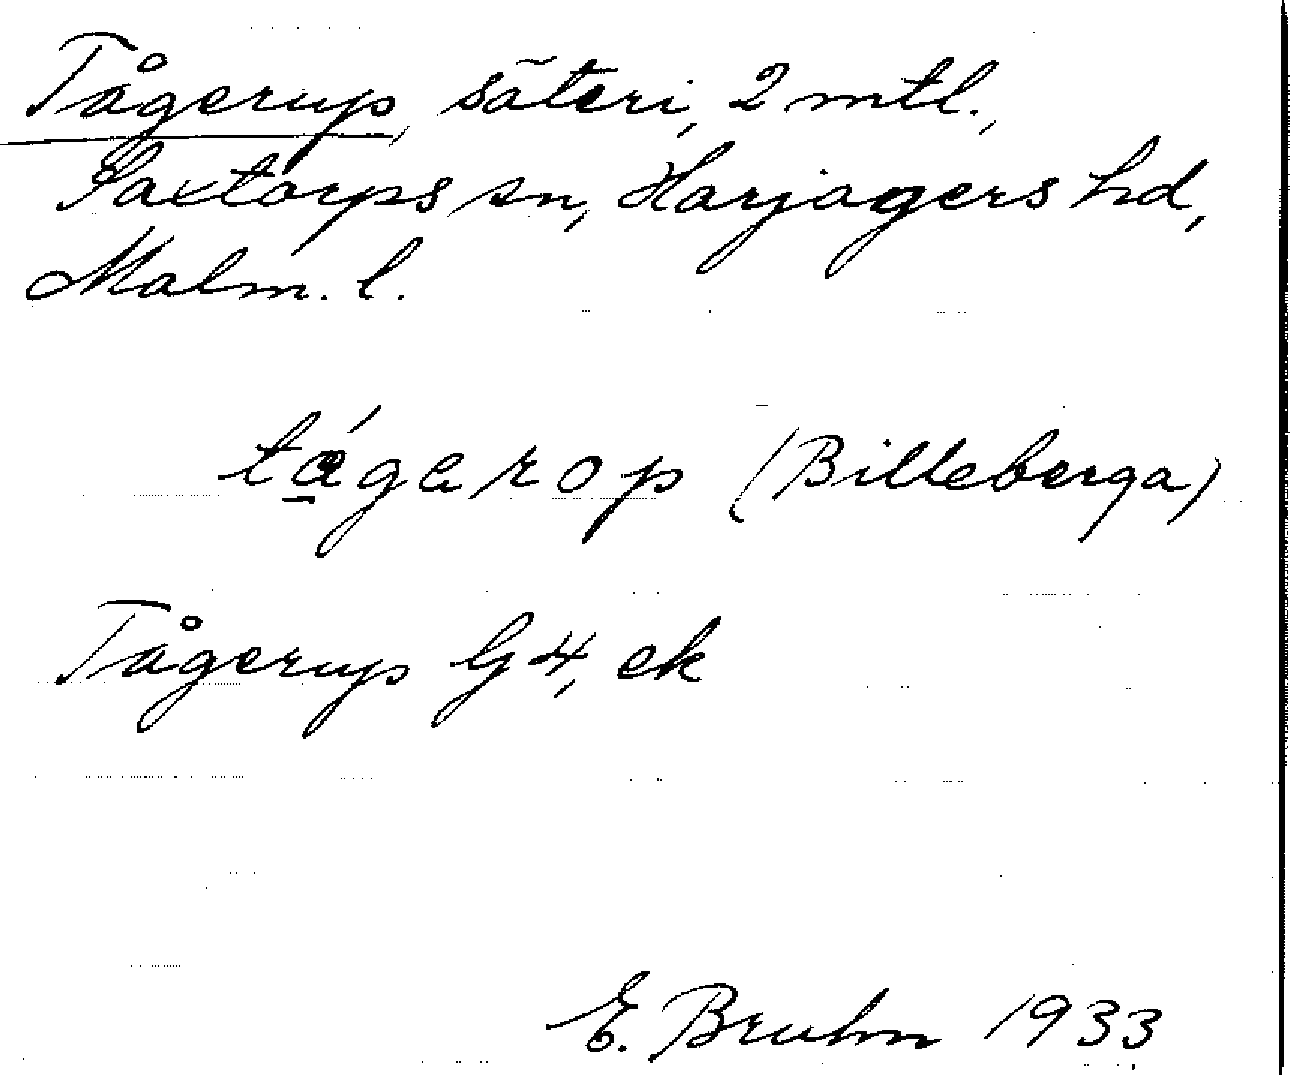 Tågerup, säteri, 2 mtl.,
Saxtorps sn, Harjagers hd,
Malm. l.
tágarop (Billeberga)
Tågerup G4, ek
E. Bruhn 1933